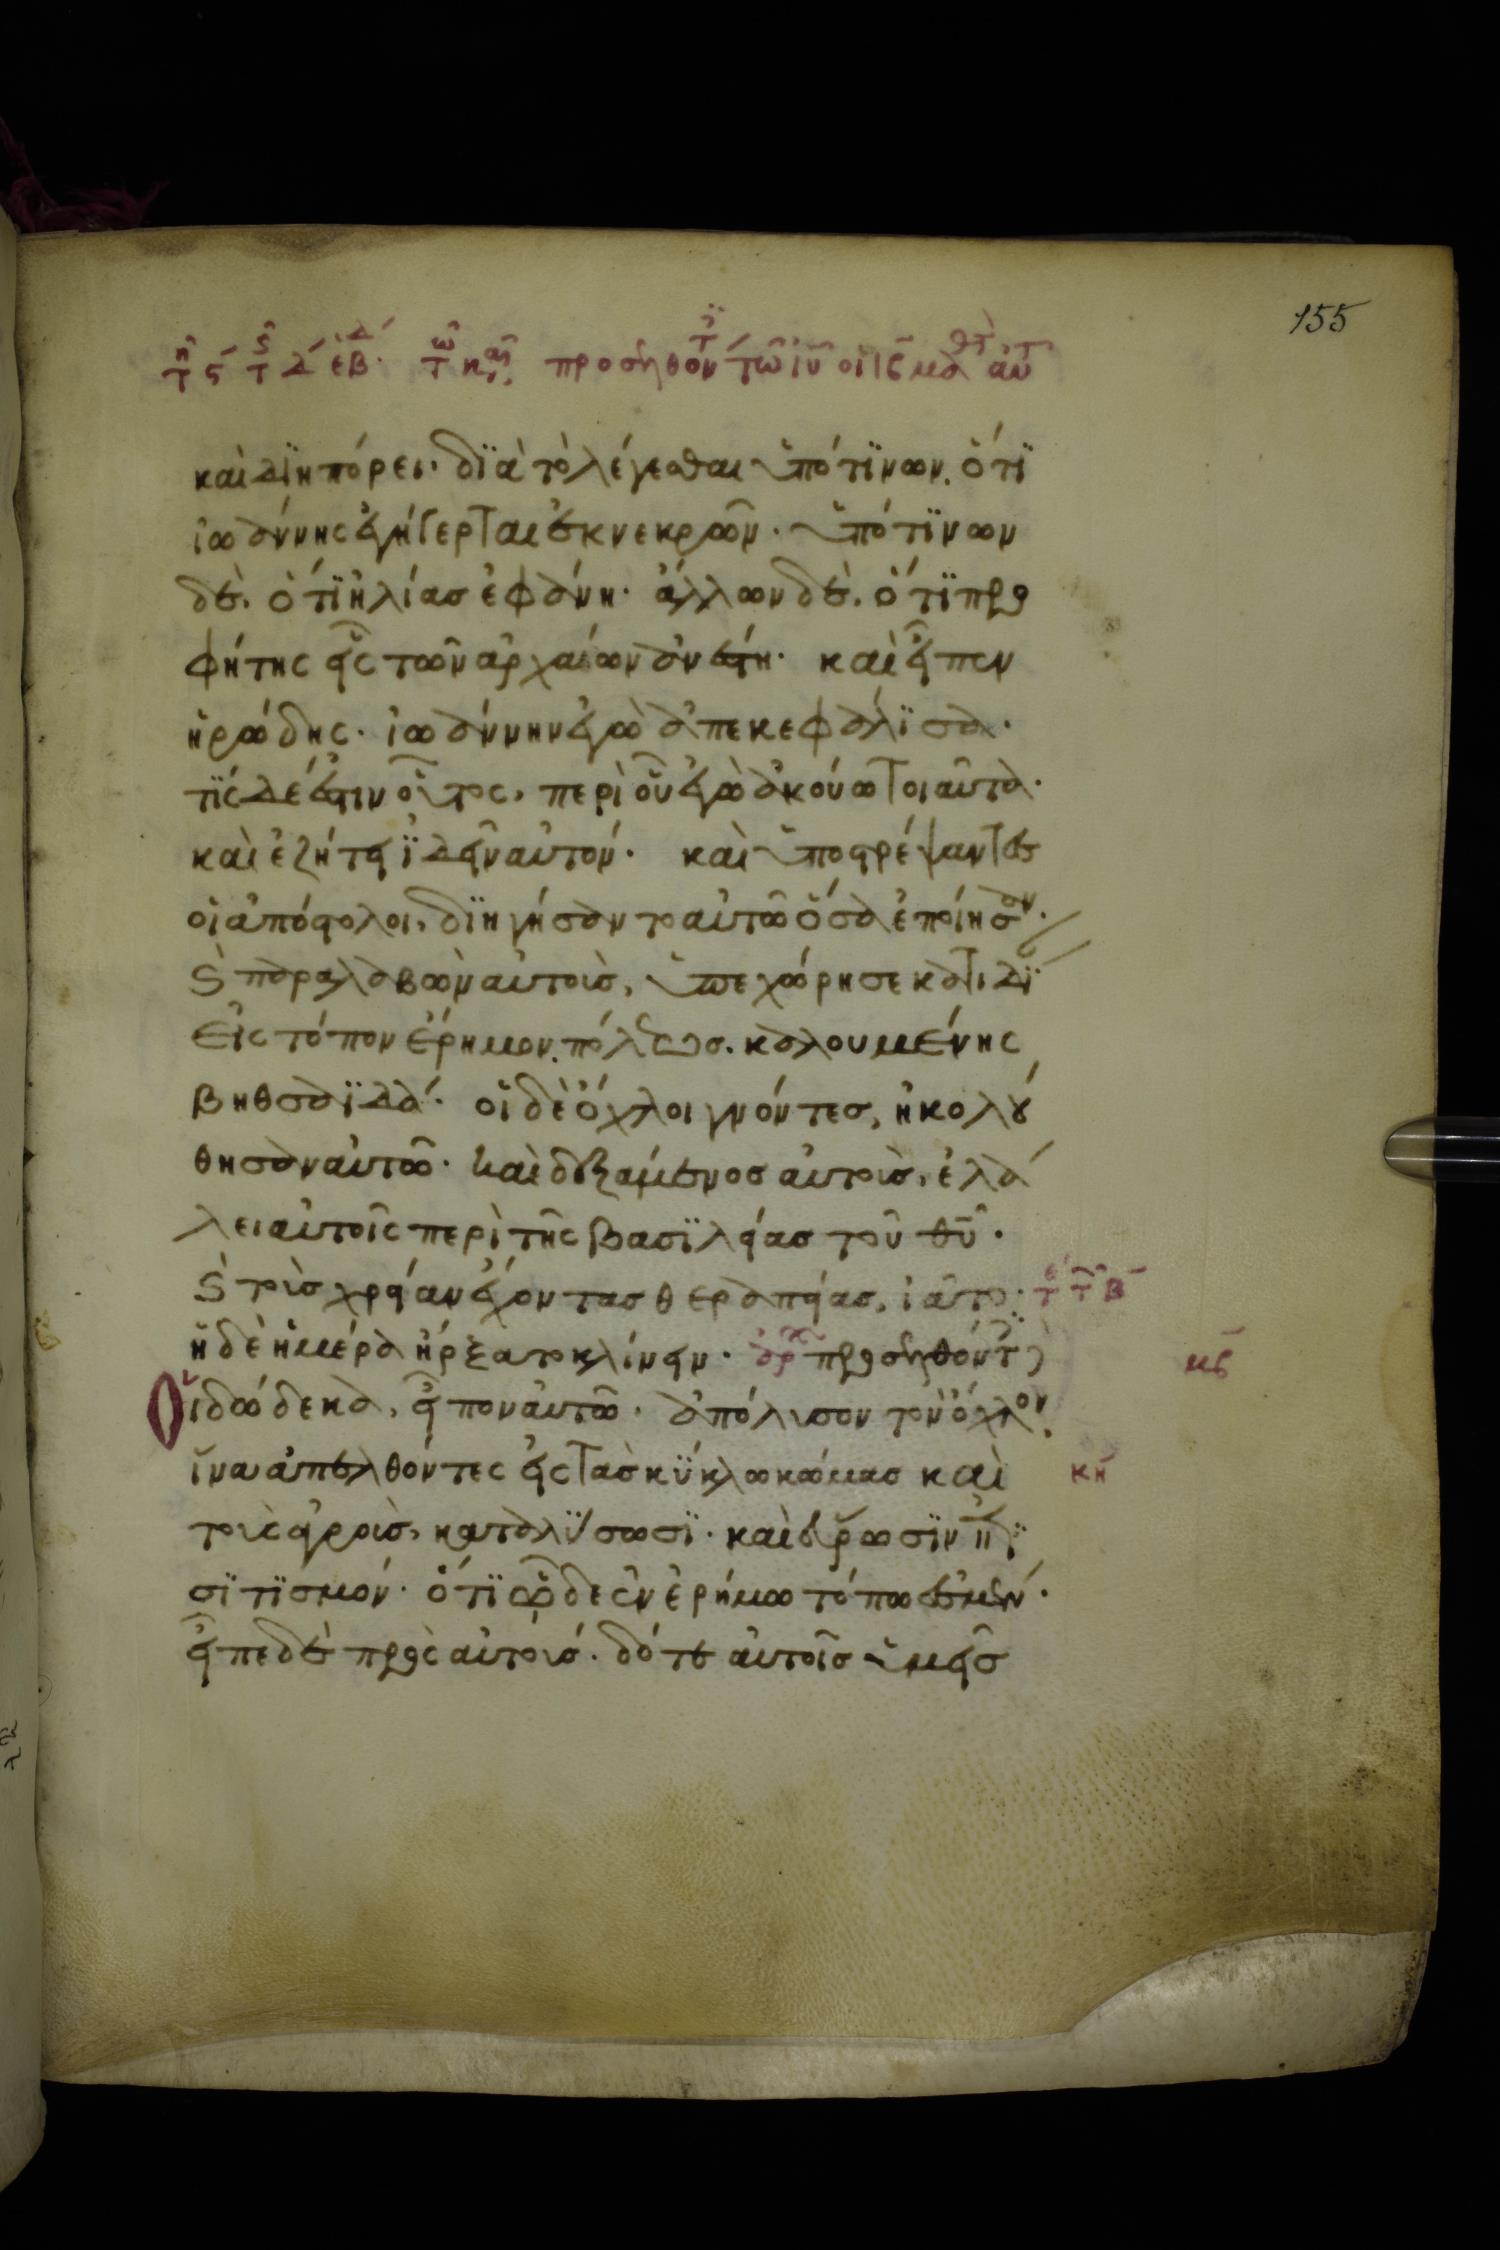 155
τῇ ϛ τ Δ ἑβ. τῶ κῶ προσῆλθον τῶ ἰῦ οἱ ιβ μαθτ αὐτ
καὶ διηπόρει· διὰ τὸ λέγεσθαι ὑπό τινων, ὅτι
ἰωάννης ἐγήγερται ἐκ νεκρῶν· ὑπό τινων
δὲ, ὅτι ἠλίας ἐφάνη· ἄλλων δὲ, ὅτι προ
φήτης εἷς τῶν ἀρχαίων ἀνέστη· καὶ εἶπεν
ἡρώδης· ἰωάννην ἐγὼ ἀπεκεφάλισα·
τίς δέ ἐστιν οὗτος, περὶ οὗ ἐγὼ ἀκούω τοιαῦτα·
καὶ ἐζήτει ἰδεῖν αὐτόν· καὶ ὑποστρέψαντες
οἱ ἀπόστολοι, διηγήσαντο αὐτῶ ὅσα ἐποίησαν·
ϗ παραλαβὼν αὐτοὺς, ὑπεχώρησε κατιδί
εἰς τόπον ἔρημον, πόλεως καλουμένης
βηθσαϊδά· οἱ δὲ ὄχλοι γνόντες, ἠκολού
θησαν αὐτῶ· καὶ δεξάμενος αὐτοὺς, ἐλά
λει αὐτοῖς περὶ τῆς βασιλείας τοῦ θῦ·
ϗ τοὺς χρείαν ἔχοντας θεραπείας, ἰᾶτο· τέ τ β
ἡ δὲ ἡμέρα ἤρξατο κλίνειν· ἀρχ προσελθόντ
μϛ
Οἱ δώδεκα, εἶπον αὐτῶ· ἀπόλυσον τὸν ὄχλον,
ἵνα ἀπελθόντες εἰς τὰς κύκλω κώμας καὶ κη
τοὺς ἀγροὺς, καταλύσωσι· καὶ εὕρωσιν ἐπι
σιτισμόν· ὅτι ὧδε ἐν ἐρήμω τόπω ἐσμέν·
εἶπε δὲ πρὸς αὐτούς· δότε αὐτοῖς ὑμεῖς